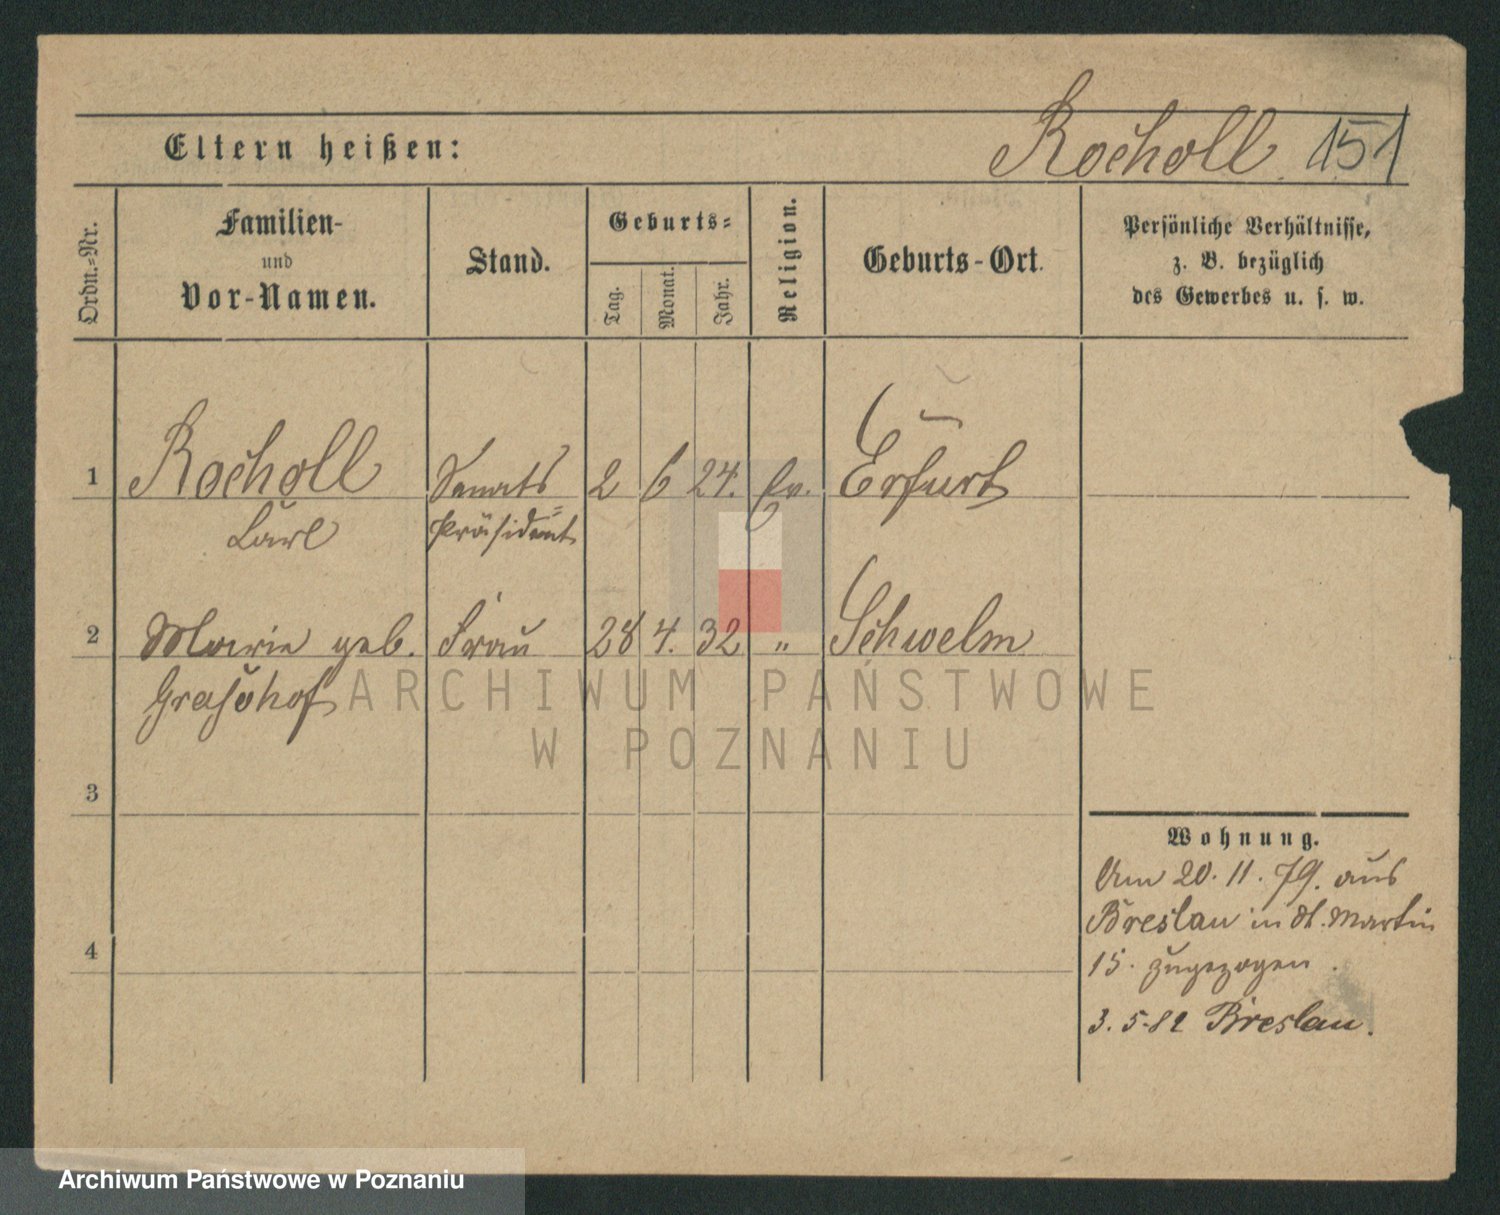 Eltern heißen:
Rocholl. 151
Ordn.-Nr.
Familien-
und
Vor-Namen.
Stand.
Geburts-
Tag.
Monat.
Jahr.
Religion.
Geburts-Ort.
Persönliche Verhältnisse,
z. B. bezüglich
des Gewerbes u. s. w.
1 Rocholl Senats 2 6 24. Ev. Erfurt
Carl Präsident
2 Marie geb. Frau 28 4. 32 " Schwelm
Grashof
ARCHIWUM PAŃSTWOWE
W POZNANIU
3
Wohnung.
Am 20. 11. 79. aus
Breslau in St. Martin
15. zugezogen.
4
3. 5. 82 Breslau.
Archiwum Państwowe w Poznaniu